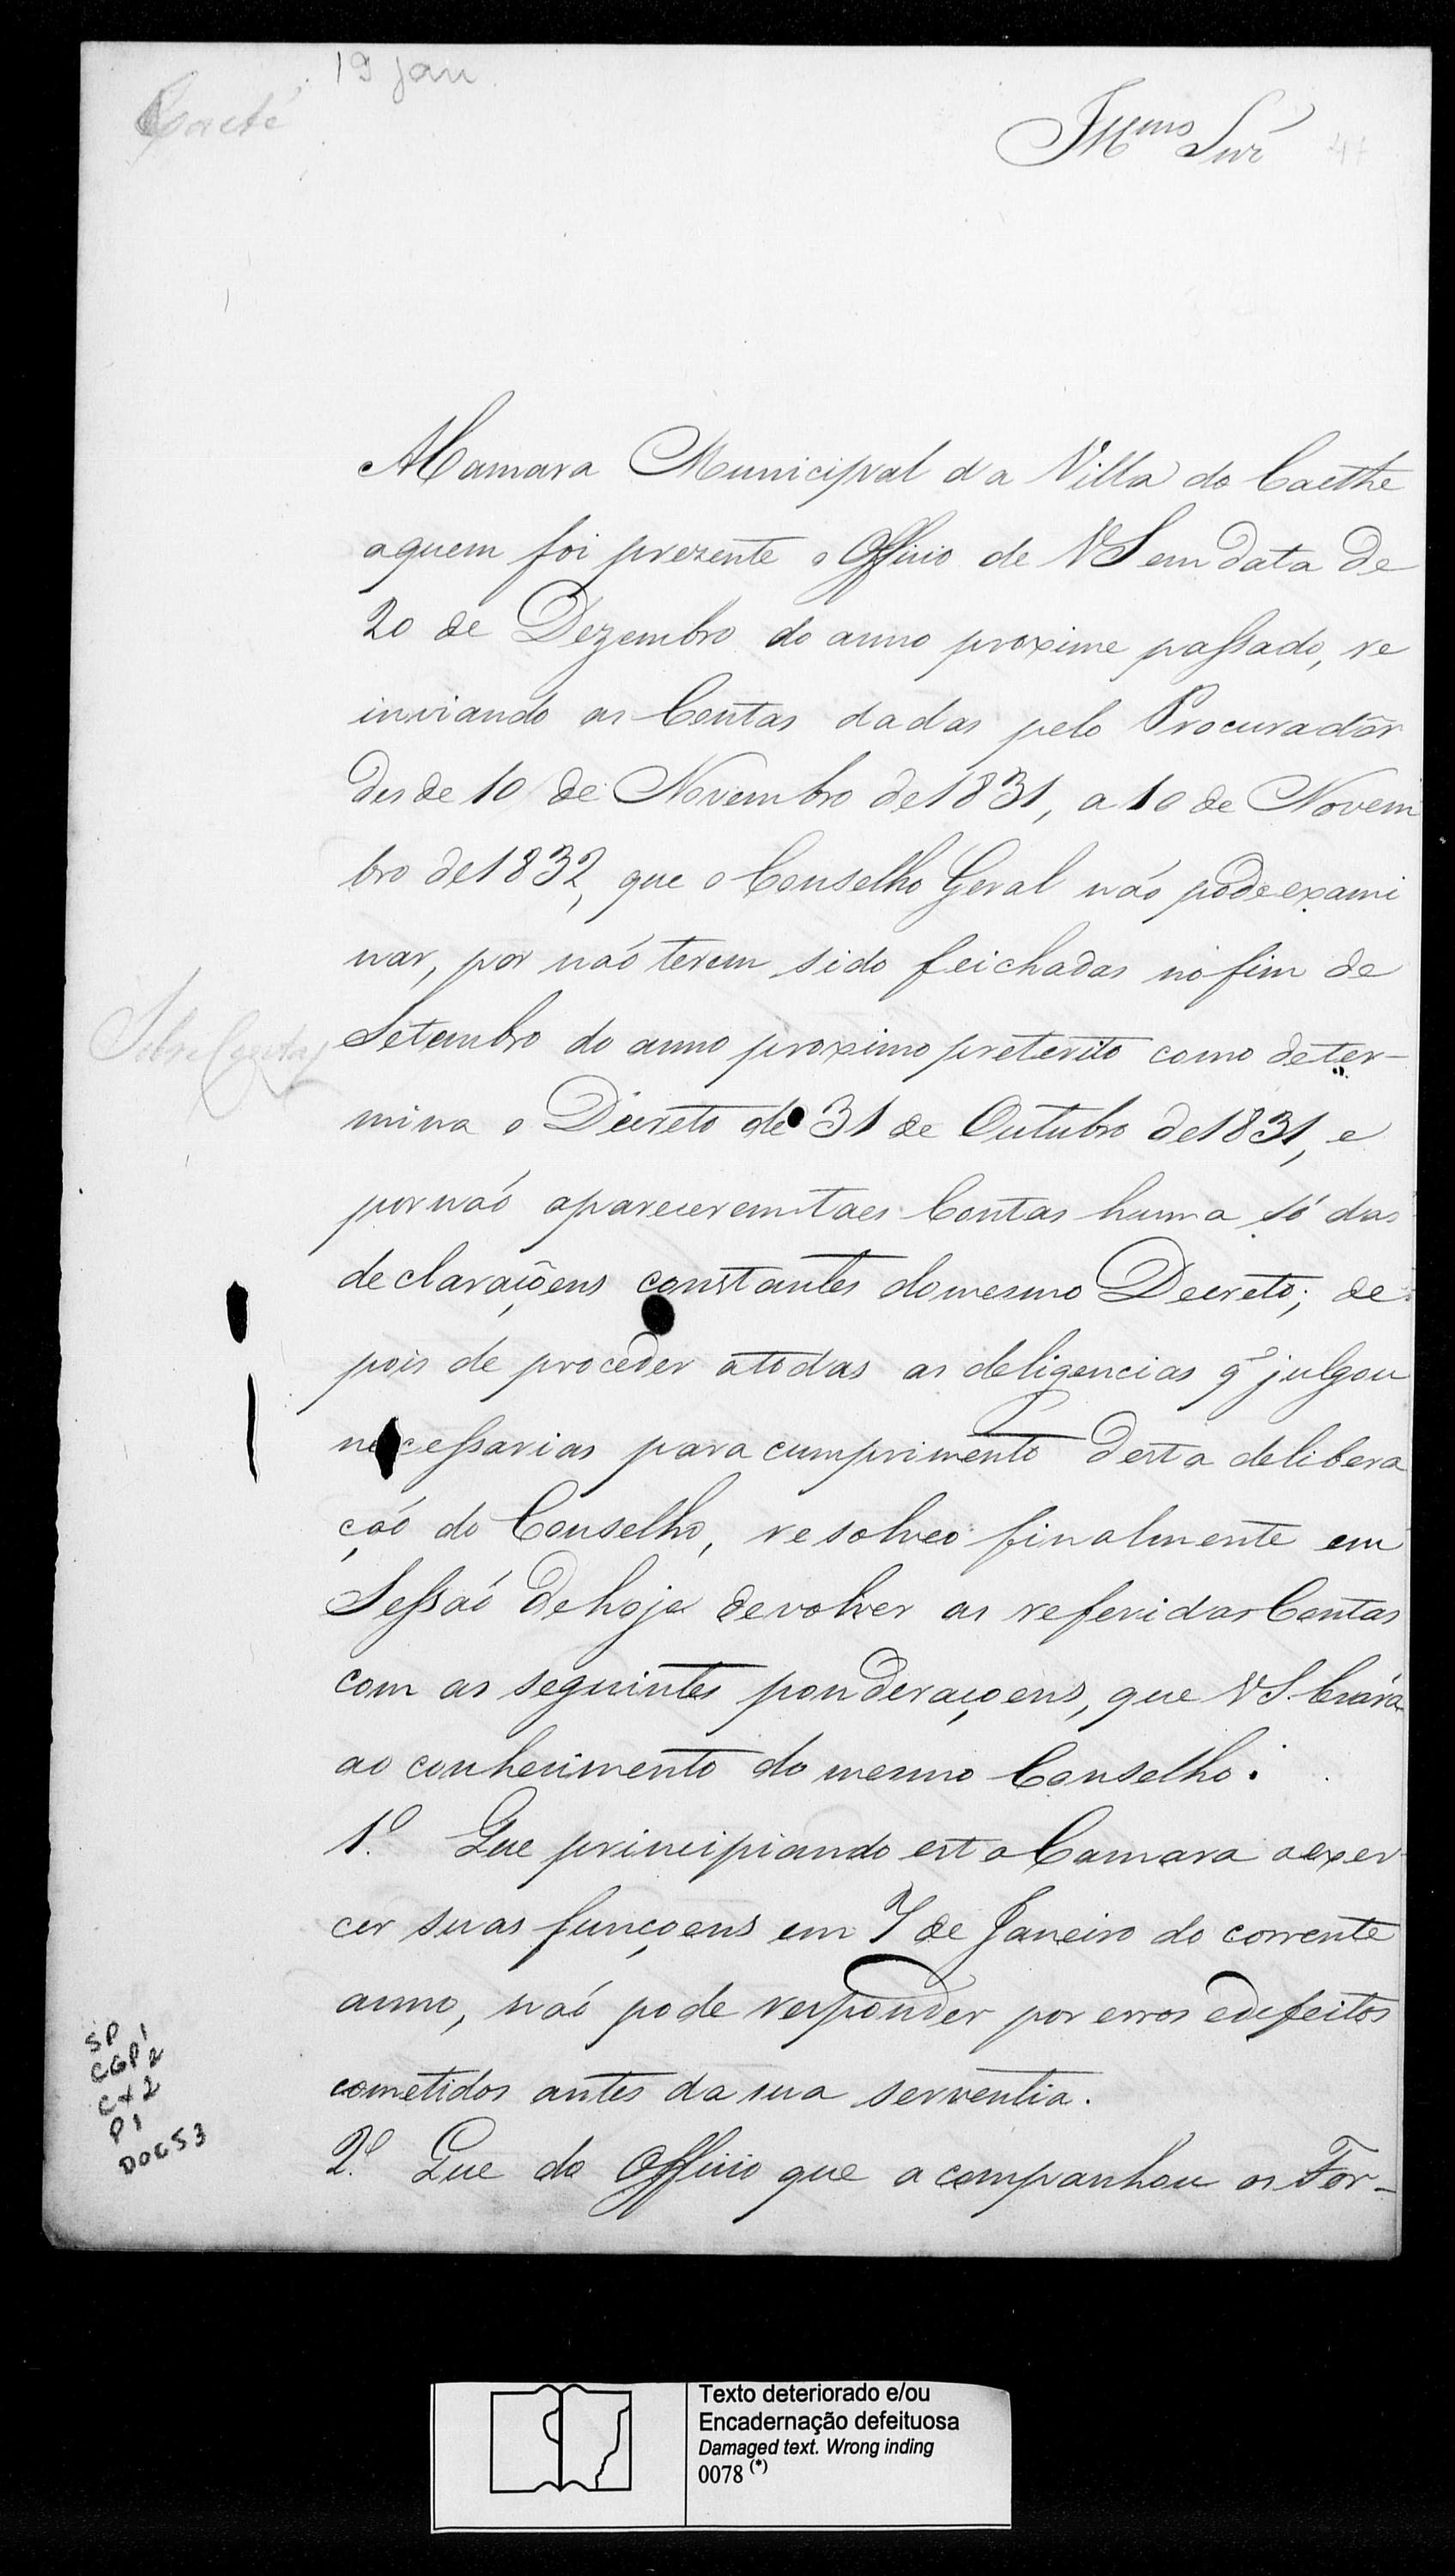 19 Jan
Caeté
Illmo Snr
47
A Camara Municipal da Villa do Caethe
aquem foi prezente o Officio de VS em data de
20 de Dezembro do anno proxime passado, re
inviando as Contas dadas pelo Procurador
desde 10 de Novembro de 1831, a 10 de Novem
bro de 1832, que o Conselho Geral não pode exami
nar, por naó terem sido feichadas no fim de
Setembro do anno proximo preterito como deter-
mina o Decreto de 31 de Outubro de 1831, e
por naó aparecerem taes Contas huma só das
declaraçoens constantes do mesmo Decreto; de
pois de proceder atodas as deligencias q̃ julgou
necessarias para cumprimento desta delibera
çaó do Conselho, resolveo finalmente em
Sessaó de hoje devolver as referidas Contas
com as seguintes ponderaçoens, que VS. levára
ao conhecimento do mesmo Conselho.
Sobre Contas
1.º Que principiando esta Camara aexer
cer suas funçoens em 7 de Janeiro do corrente
anno, naó pode responder por erros edefeitos
cometidos antes da sua serventia.
2.º Que do Officio que acompanhou os For-
SP
CGP1 2
CX2
P1
DOC53
Texto deteriorado e/ou
Encadernação defeituosa
Damaged text. Wrong inding
0078 (*)